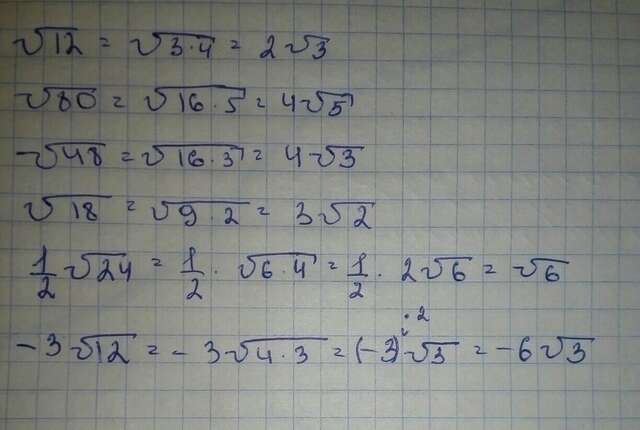 √12 = √3·4 = 2√3
√80 = √16·5 = 4√5
-√48 = √16·3 = 4√3
√18 = √9·2 = 3√2
1/2 √24 = 1/2 · √6·4 = 1/2 · 2√6 = √6
-3√12 = -3√4·3 = (-3)·2√3 = -6√3